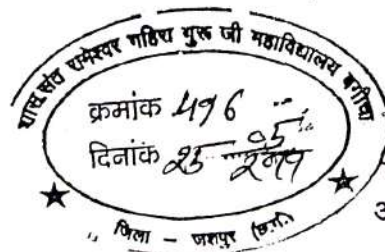 शास. संत रामेश्वर गहिरा गुरू जी महाविद्यालय बगीचा
क्रमांक 496
दिनांक 25 05 2019
जिला - जशपुर (छ.ग.)